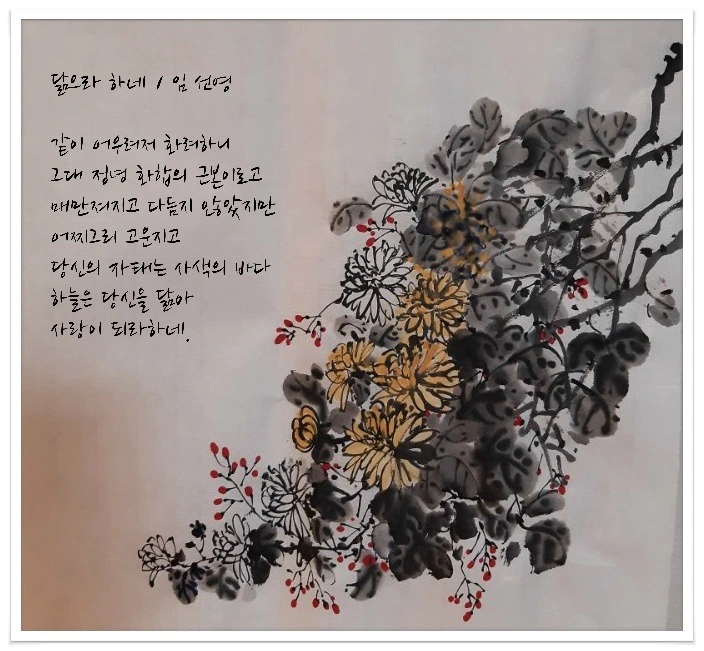 닮으라 하네 / 임 선영
같이 어우러져 화려하니
그대 정녕 화합의 근본이로고
매만져지고 다듬지 않았지만
어찌그리 고운지고
당신의 자태는 사색의 바다
하늘은 당신을 닮아
사랑이 되라하네.